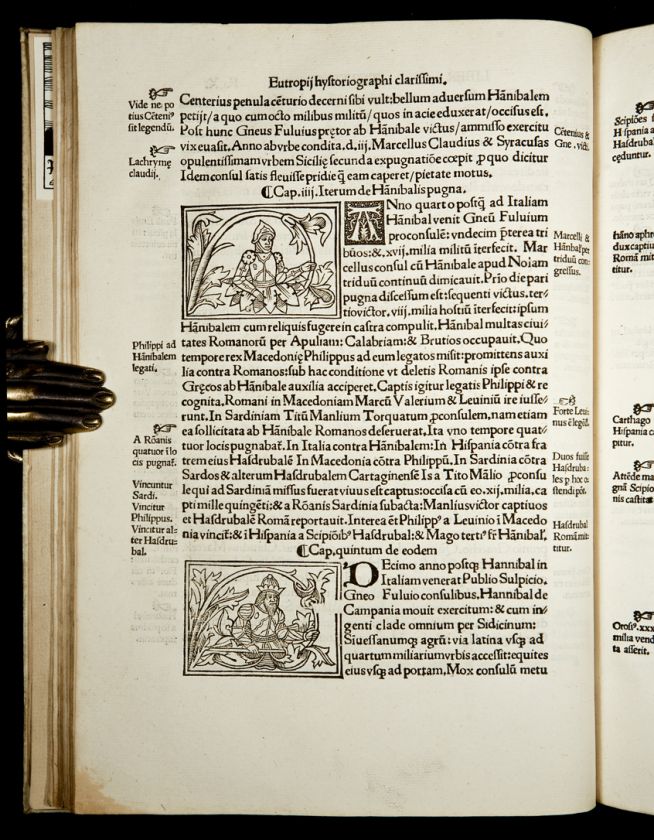 Eutropij hystoriographi clarissimi.
Centerius penula cēturio decerni sibi vult: bellum aduersum Hānibalem
petijt/a quo cum octo milibus militū/quos in acie eduxerat/occisus est.
Post hunc Gneus Fuluius prętor ab Hānibale victus/ammisso exercitu
vix euasit. Anno ab vrbe condita.d.iij. Marcellus Claudius & Syracusas
opulentissimam vrbem Sicilię secunda expugnatiōe cœpit ꝓ quo dicitur
Idem consul satis fleuisse pridie q̄ eam caperet/pietate motus.
¶Cap.iiij.Iterum de Hānibalis pugna.
ANno quarto postq̄ ad Italiam
Hānibal venit Gneū Fuluium
proconsulē: vndecim p̄terea tri
būos:&.xvij.milia militū īterfecit. Mar
cellus consul cū Hānibale apud Nolam
triduū continuū dimicauit. Prīo die pari
pugna discessum est: sequenti victus. ter/
tio victor. viij.milia hostiū īterfecit: ipsum
Hānibalem cum reliquis fugere in castra compulit. Hānibal multas ciui/
tates Romanorū per Apuliam: Calabriam: & Brutios occupauit. Quo
tempore rex Macedonię Philippus ad eum legatos misit: promittens auxi
lia contra Romanos: sub hac conditione vt deletis Romanis ipse contra
Gręcos ab Hānibale auxilia acciperet. Captis igitur legatis Philippi & re
cognita. Romani in Macedoniam Marcū Valerium & Leuiniū ire iusse/
runt. In Sardiniam Titū Manlium Torquatum ꝓconsulem, nam etiam
ea sollicitata ab Hānibale Romanos deseruerat. Ita vno tempore quat/
tuor locis pugnabat̄. In Italia contra Hānibalem: In Hispania cōtra fra
trem eius Hasdrubalē In Macedonia cōtra Philippū. In Sardinia cōtra
Sardos & alterum Hasdrubalem Cartaginensē Is a Tito Mālio ꝓconsu
le qui ad Sardiniā missus fuerat viuus est captus: occisa cū eo.xij.milia, ca
pti mille quingēti: & a Rōanis Sardinia subacta: Manlius victor captiuos
et Hasdrubalē Romā reportauit. Interea ēt Philippꝰ a Leuinio ī Macedo
nia vincit̄: & ī Hispania a Scipiōibꝰ Hasdrubal: & Mago tertiꝰ fr̄ Hānibal'.
¶Cap.quintum de eodem
DEcimo anno postq̄ Hannibal in
Italiam venerat Publio Sulpicio.
Gneo Fuluio consulibus. Hannibal de
Campania mouit exercitum: & cum in/
genti clade omnium per Sidicinum:
Siuessanumq; agrū: via latina vsq; ad
quartum miliarium vrbis accessit: equites
eius vsq; ad portam. Mox consulū metu
Vide ne po
tius Cēteniꝰ
sit legendū.
Lachrymę
claudij.
Philippi ad
Hānibalem
legati.
A Rōanis
quatuor ī lo
cis pugnat̄.
Vincuntur
Sardi.
Vincitur
Philippus.
Vincitur al=
ter Hasdru=
bal.
Cētenius &
Gne. victi.
Marcelli &
Hānibal' per
triduū con=
gressus.
Forte Leui=
nus ē legēd.
Duos fuisse
Hasdruba=
les p hoc o=
stendi pōt.
Hasdrubal
Romā mit=
titur.
Scipiōes
Hispania a
Hasdruba
cęduntur.
hāno aphr
dux captiu
Romā mit
titur.
Carthago
Hispania c
pitur.
Attēde ma
gnā Scipio
nis castita
Orosꝰ.xxx
milia vend
ta asserit.